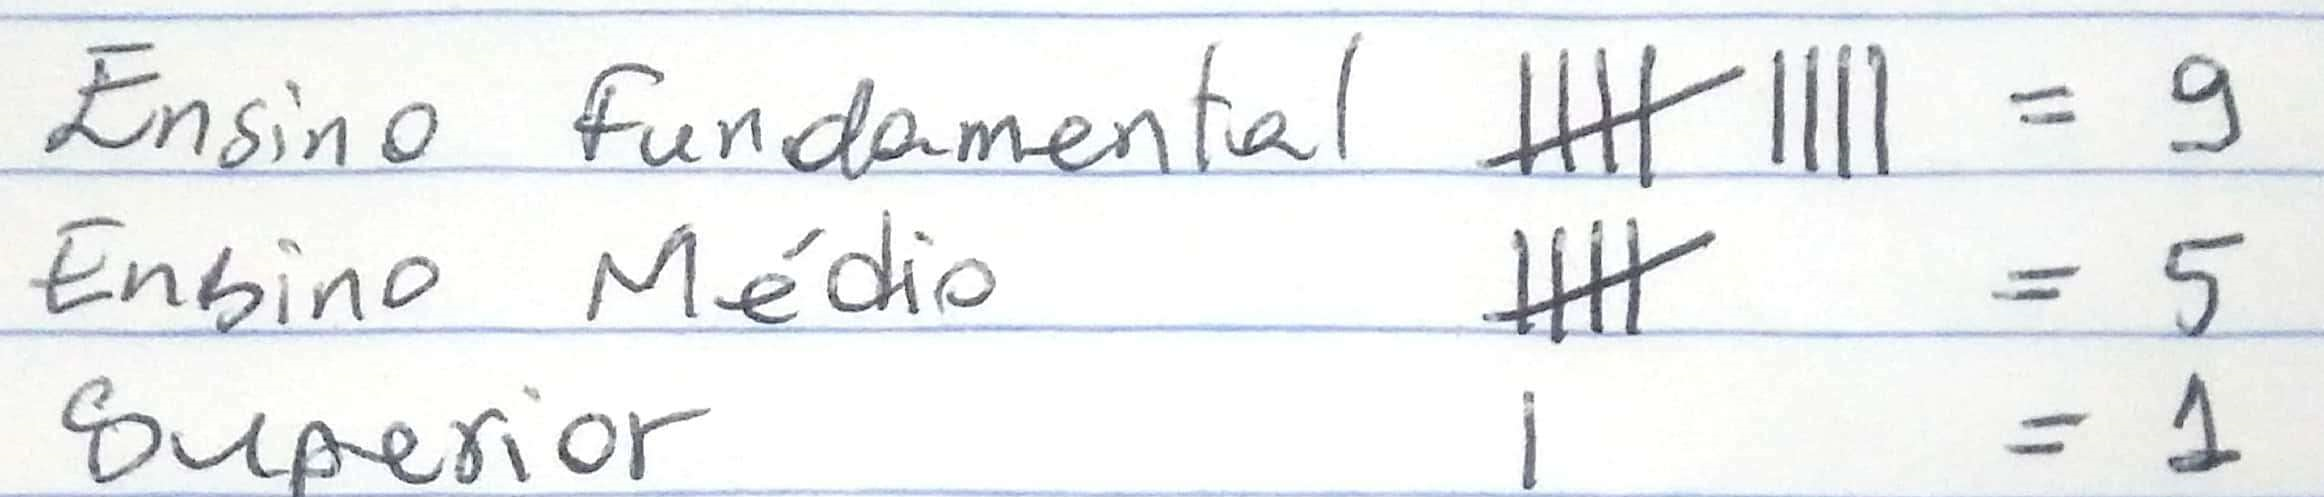 Ensino Fundamental 𝍸 |||| = 9
Ensino Médio 𝍸 = 5
Superior | = 1